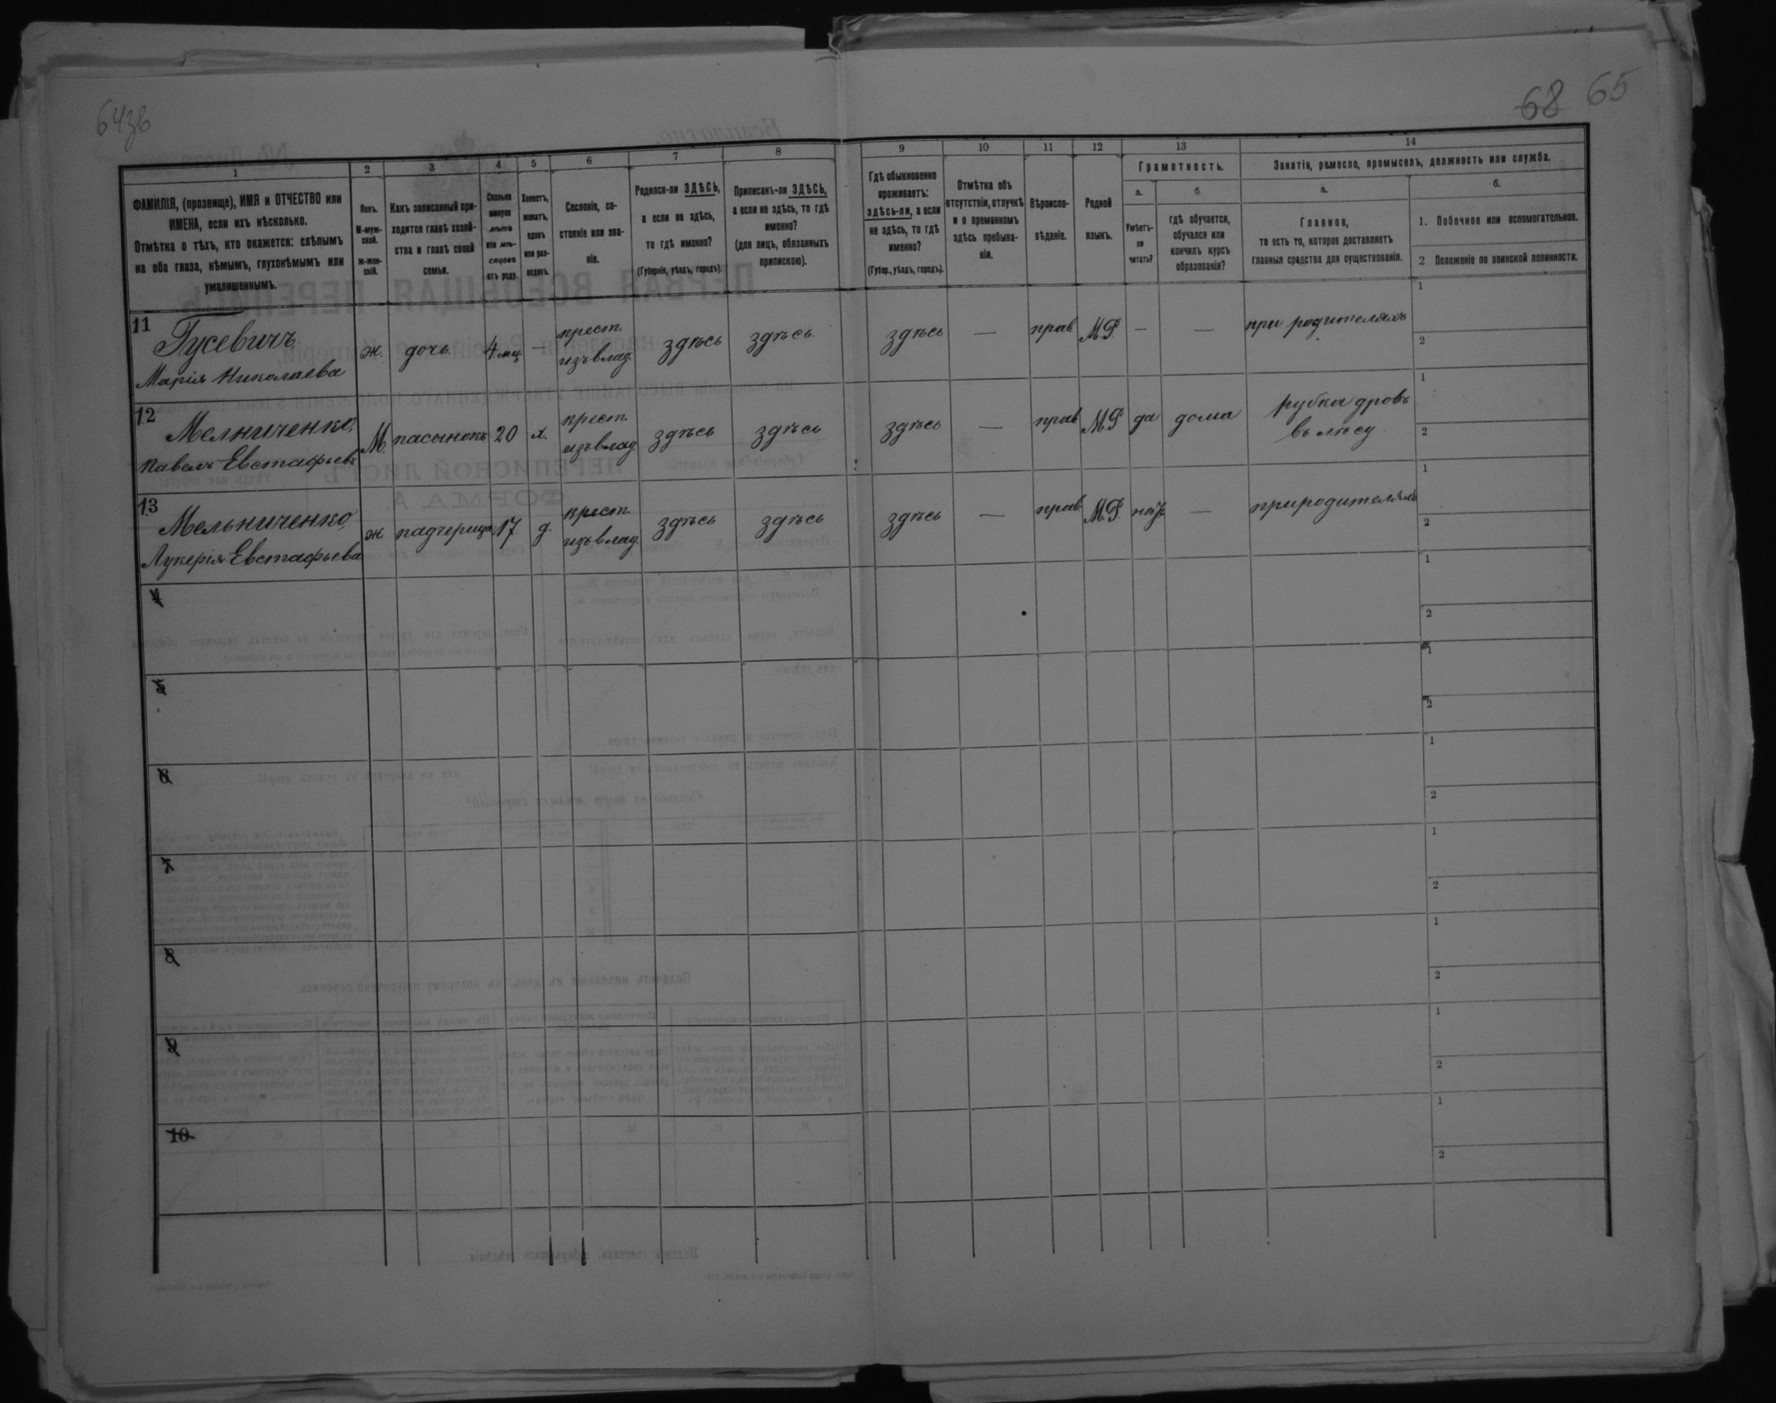 64зв
68 65
1
2
3
4
5
6
7
8
9
10
11
12
13
14
ФАМИЛІЯ, (прозвище), ИМЯ и ОТЧЕСТВО или
ИМЕНА, если ихъ нѣсколько.
Отмѣтка о тѣхъ, кто окажется: слѣпымъ
на оба глаза, нѣмымъ, глухонѣмымъ или
умалишеннымъ.
Полъ.
М-муж-
ской.
ж-жен-
скій.
Какъ записанный при-
ходится главѣ хозяй-
ства и главѣ своей
семьи.
Сколько
минуло
лѣтъ
или мѣ-
сяцевъ
отъ роду.
Холостъ,
женатъ,
вдовъ
или раз-
веденъ.
Сословіе, со-
стояніе или зва-
ніе.
Родился-ли ЗДѢСЬ,
а если не здѣсь,
то гдѣ именно?
(Губернія, уѣздъ, городъ).
Приписанъ-ли ЗДѢСЬ,
а если не здѣсь, то гдѣ
именно?
(для лицъ, обязанныхъ
припискою).
Гдѣ обыкновенно
проживаетъ:
здѣсь-ли, а если
не здѣсь, то гдѣ
именно?
(Губер., уѣздъ, городъ).
Отмѣтка объ
отсутствіи, отлучкѣ
и о временномъ
здѣсь пребыва-
ніи.
Вѣроиспо-
вѣданіе.
Родной
языкъ.
Грамотность.
а.
Умѣетъ-
ли
читать?
б.
гдѣ обучается,
обучался или
кончилъ курсъ
образованія?
Занятіе, ремесло, промыселъ, должность или служба.
а.
Главное,
то есть то, которое доставляетъ
главныя средства для существованія.
б.
1. Побочное или вспомогательное.
2 Положеніе по воинской повинности.
11 Гусевичъ
Марія Николаева ж. дочь 4 мц. — крест. изъ влад. здѣсь здѣсь здѣсь — прав М.Р. — — при родителяхъ 1 2
12 Мелниченко,
Павелъ Евстафьевъ М. пасынокъ 20 х. крест. изъ влад. здѣсь здѣсь здѣсь — прав М.Р да дома рубка дровъ въ лѣсу 1 2
13 Мельниченко,
Лукерія Евстафьева ж падчерица 17 д. крест. изъ влад. здѣсь здѣсь здѣсь — прав М.Р. нѣтъ — при родителяхъ 1 2
4 1 2
5 1 2
6 1 2
7 1 2
8 1 2
9 1 2
10 1 2